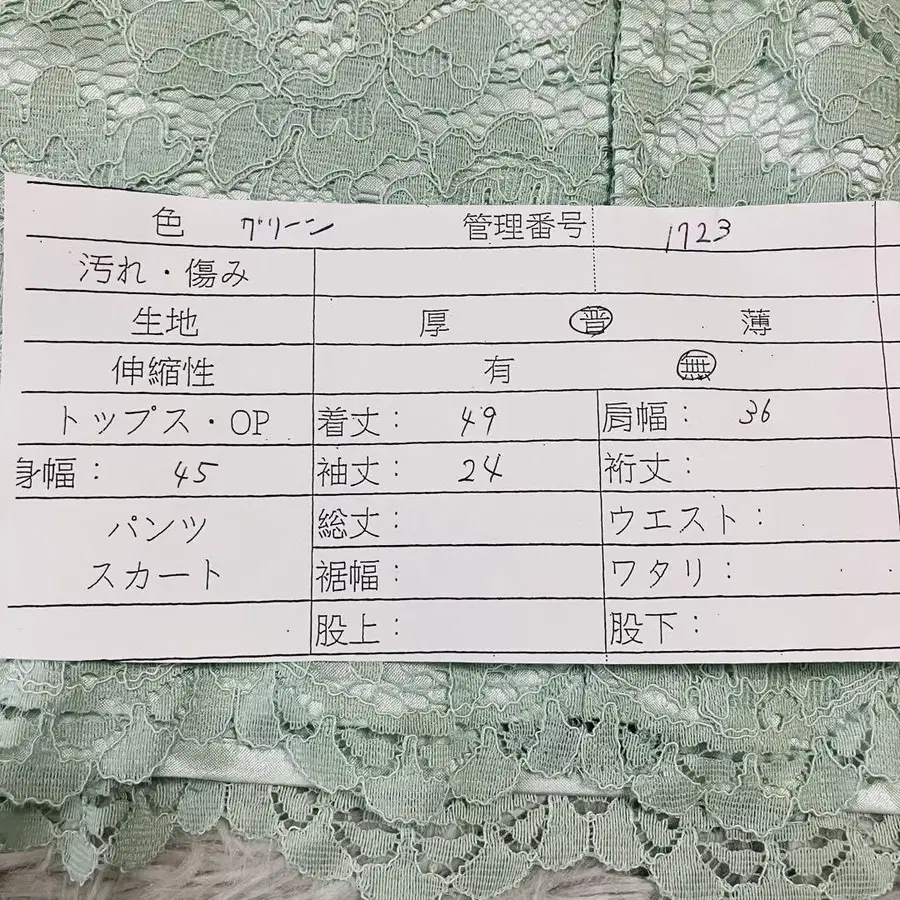 色 グリーン 管理番号 1723
汚れ・傷み
生地 厚 普 薄
伸縮性 有 無
トップス・OP 着丈: 49 肩幅: 36
身幅: 45 袖丈: 24 裄丈:
パンツ 総丈: ウエスト:
スカート 裾幅: ワタリ:
股上: 股下: